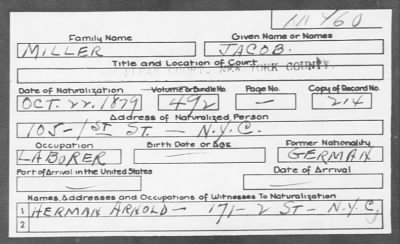 M460
Family Name Given Name or Names
MILLER JACOB.
Title and Location of Court
COURT, NEW YORK COUNTY.
Date of Naturalization Volume or Bundle No. Page No. Copy of Record No.
OCT. 22. 1879 492 — 214
Address of Naturalized Person
105 - 1 ST ST. - N.Y.C.
Occupation Birth Date or Age Former Nationality
LABORER GERMAN
Port of Arrival in the United States Date of Arrival
Names, Addresses and Occupations of Witnesses To Naturalization
1 HERMAN ARNOLD - 171 - 2 ST - N.Y.C.
2